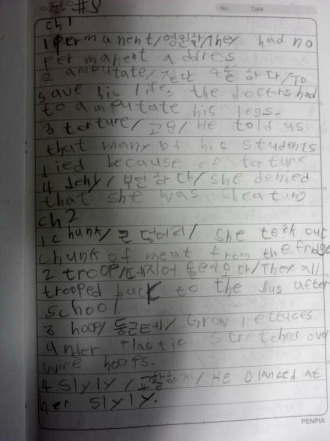 #8
ch1
1 permanent/영원한/They had no
permanent address
2 amputate/절단 수술하다/To
save his life, the doctors had
to amputate his legs.
3 torture/고문/He told us
that many of his students
died because of torture
4 deny/부인하다/she denied
that she was cheating
ch2
1 chunk/큰 덩어리/she took out
chunk of meat from the fridge
2 troop/떼지어 몰려오다/They all
trooped back to the bus after
school
3 hoop/둥근테/Grow lettuces
under plastic stretched over
wire hoops.
4 slyly/교활하게/He glanced at
her slyly.
No. Date
PENPIA